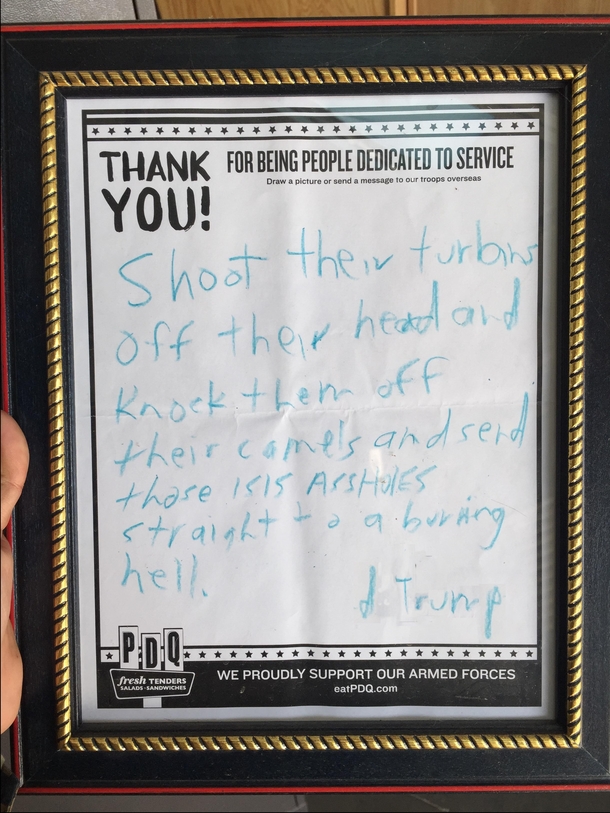 THANK
YOU!
FOR BEING PEOPLE DEDICATED TO SERVICE
Draw a picture or send a message to our troops overseas
Shoot their turbins
off their head and
Knock them off
their camels and send
those ISIS ASSHOLES
straight to a burning
hell.
d Trump
PDQ
fresh TENDERS
SALADS · SANDWICHES
WE PROUDLY SUPPORT OUR ARMED FORCES
eatPDQ.com